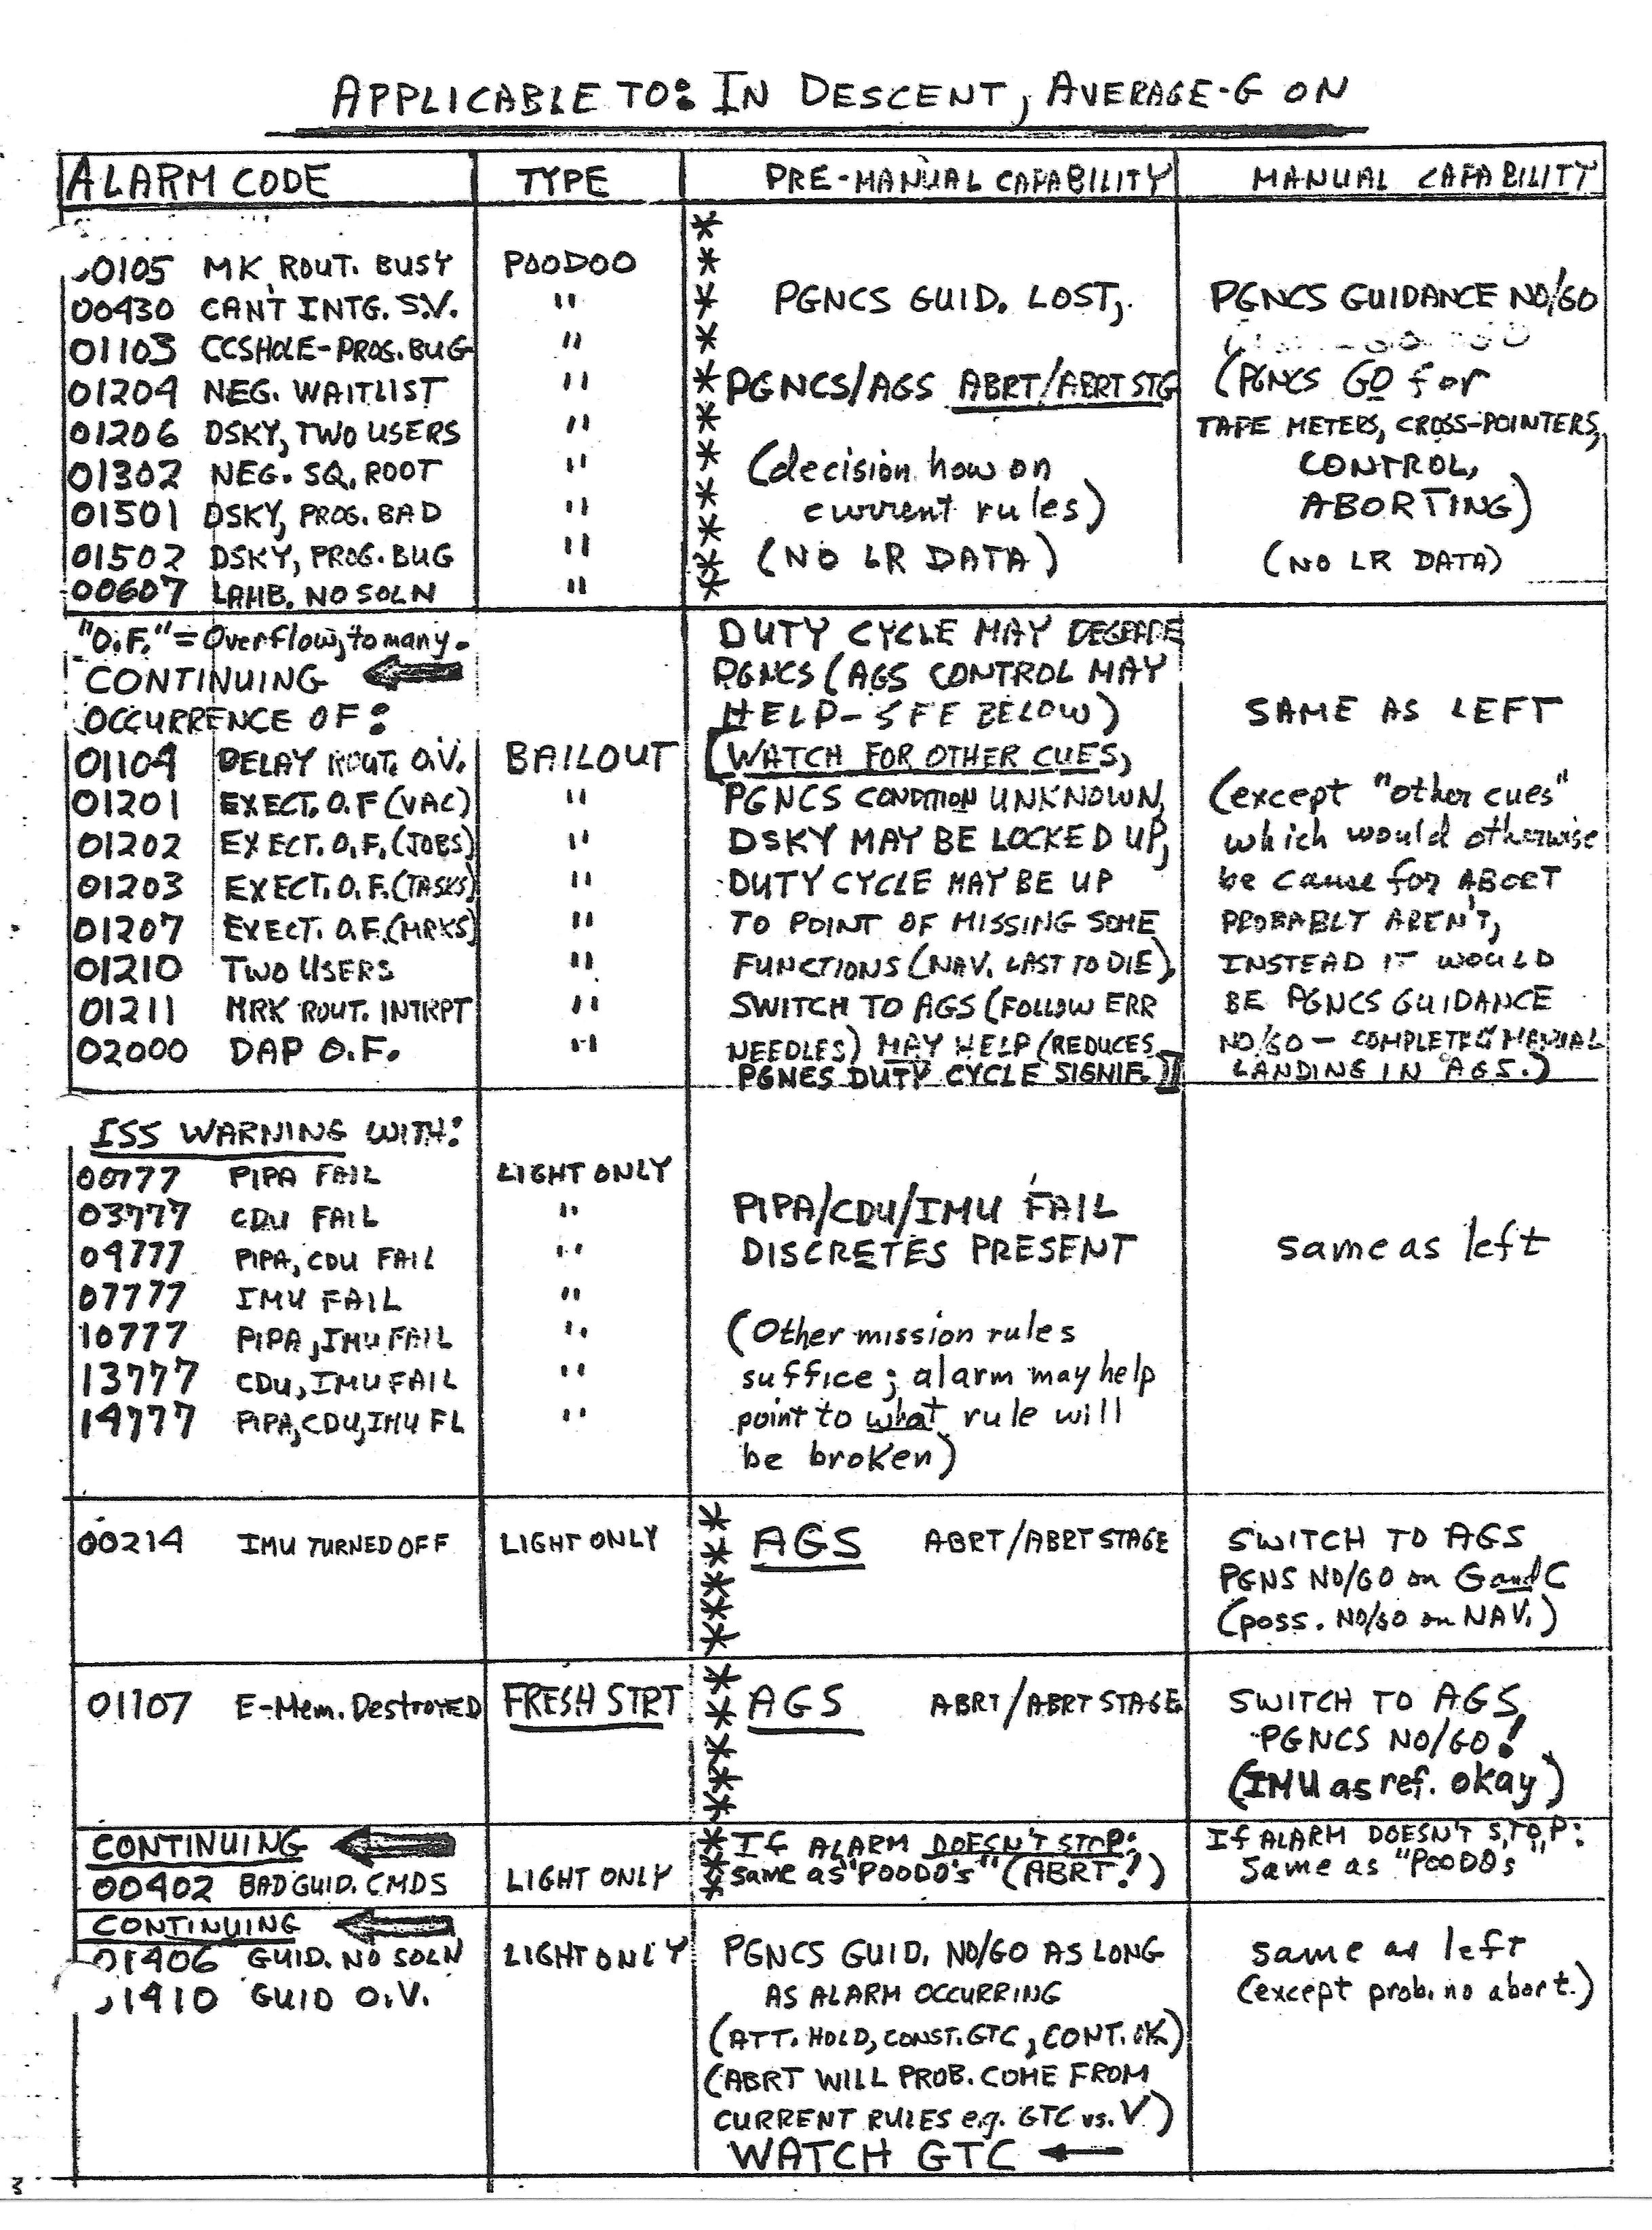 APPLICABLE TO: IN DESCENT, AVERAGE-G ON
ALARM CODE TYPE PRE-MANUAL CAPABILITY MANUAL CAPABILITY
00105 MK ROUT. BUSY POODOO
00430 CAN'T INTG. S.V. "
01103 CCSHOLE-PROG. BUG "
01204 NEG. WAITLIST "
01206 DSKY, TWO USERS "
01302 NEG. SQ. ROOT "
01501 DSKY, PROG. BAD "
01502 DSKY, PROG. BUG "
00607 LAMB. NO SOLN "
*
*
*
*
*
*
*
*
*
*
PGNCS GUID. LOST,
PGNCS/AGS ABRT/ABRT STG
(decision how on
current rules)
(NO LR DATA)
PGNCS GUIDANCE NO/GO
(PGNCS GO for
TAPE METERS, CROSS-POINTERS,
CONTROL,
ABORTING)
(NO LR DATA)
"O.F." = Overflow, to many.
CONTINUING
OCCURRENCE OF:
01104 DELAY ROUT. O.V. BAILOUT
01201 EXECT. O.F (VAC) "
01202 EXECT. O.F. (JOBS) "
01203 EXECT. O.F. (TASKS) "
01207 EXECT. O.F. (MRKS) "
01210 TWO USERS "
01211 MRK ROUT. INTRPT "
02000 DAP O.F. "
DUTY CYCLE MAY DEGRADE
PGNCS (AGS CONTROL MAY
HELP- SEE BELOW)
[WATCH FOR OTHER CUES,
PGNCS CONDITION UNKNOWN,
DSKY MAY BE LOCKED UP,
DUTY CYCLE MAY BE UP
TO POINT OF MISSING SOME
FUNCTIONS (NAV. LAST TO DIE),
SWITCH TO AGS (FOLLOW ERR
NEEDLES) MAY HELP (REDUCES
PGNCS DUTY CYCLE SIGNIF.)]
SAME AS LEFT
(except "other cues"
which would otherwise
be cause for ABORT
PROBABLY AREN'T,
INSTEAD IT WOULD
BE PGNCS GUIDANCE
NO/GO - COMPLETE MANUAL
LANDING IN AGS.)
ISS WARNING WITH:
00777 PIPA FAIL LIGHT ONLY
03777 CDU FAIL "
04777 PIPA, CDU FAIL "
07777 IMU FAIL "
10777 PIPA, IMU FAIL "
13777 CDU, IMU FAIL "
14777 PIPA, CDU, IMU FL "
PIPA/CDU/IMU FAIL
DISCRETES PRESENT
(Other mission rules
suffice; alarm may help
point to what rule will
be broken)
same as left
00214 IMU TURNED OFF LIGHT ONLY
*
*
*
*
*
AGS ABRT/ABRT STAGE
SWITCH TO AGS
PGNS NO/GO on G and C
(poss. NO/GO on NAV.)
01107 E-Mem. Destroyed FRESH STRT
*
*
*
*
*
AGS ABRT/ABRT STAGE
SWITCH TO AGS,
PGNCS NO/GO!
(IMU as ref. okay)
CONTINUING
00402 BAD GUID. CMDS LIGHT ONLY
*
*
If ALARM DOESN'T STOP:
same as "POODO's" (ABRT!)
If ALARM DOESN'T STOP:
Same as "POODOs"
CONTINUING
01406 GUID. NO SOLN LIGHT ONLY
1410 GUID O.V.
PGNCS GUID. NO/GO AS LONG
AS ALARM OCCURRING
(ATT. HOLD, CONST. GTC, CONT. OK)
(ABRT WILL PROB. COME FROM
CURRENT RULES e.g. GTC vs. V)
WATCH GTC
same as left
(except prob. no abort.)
3